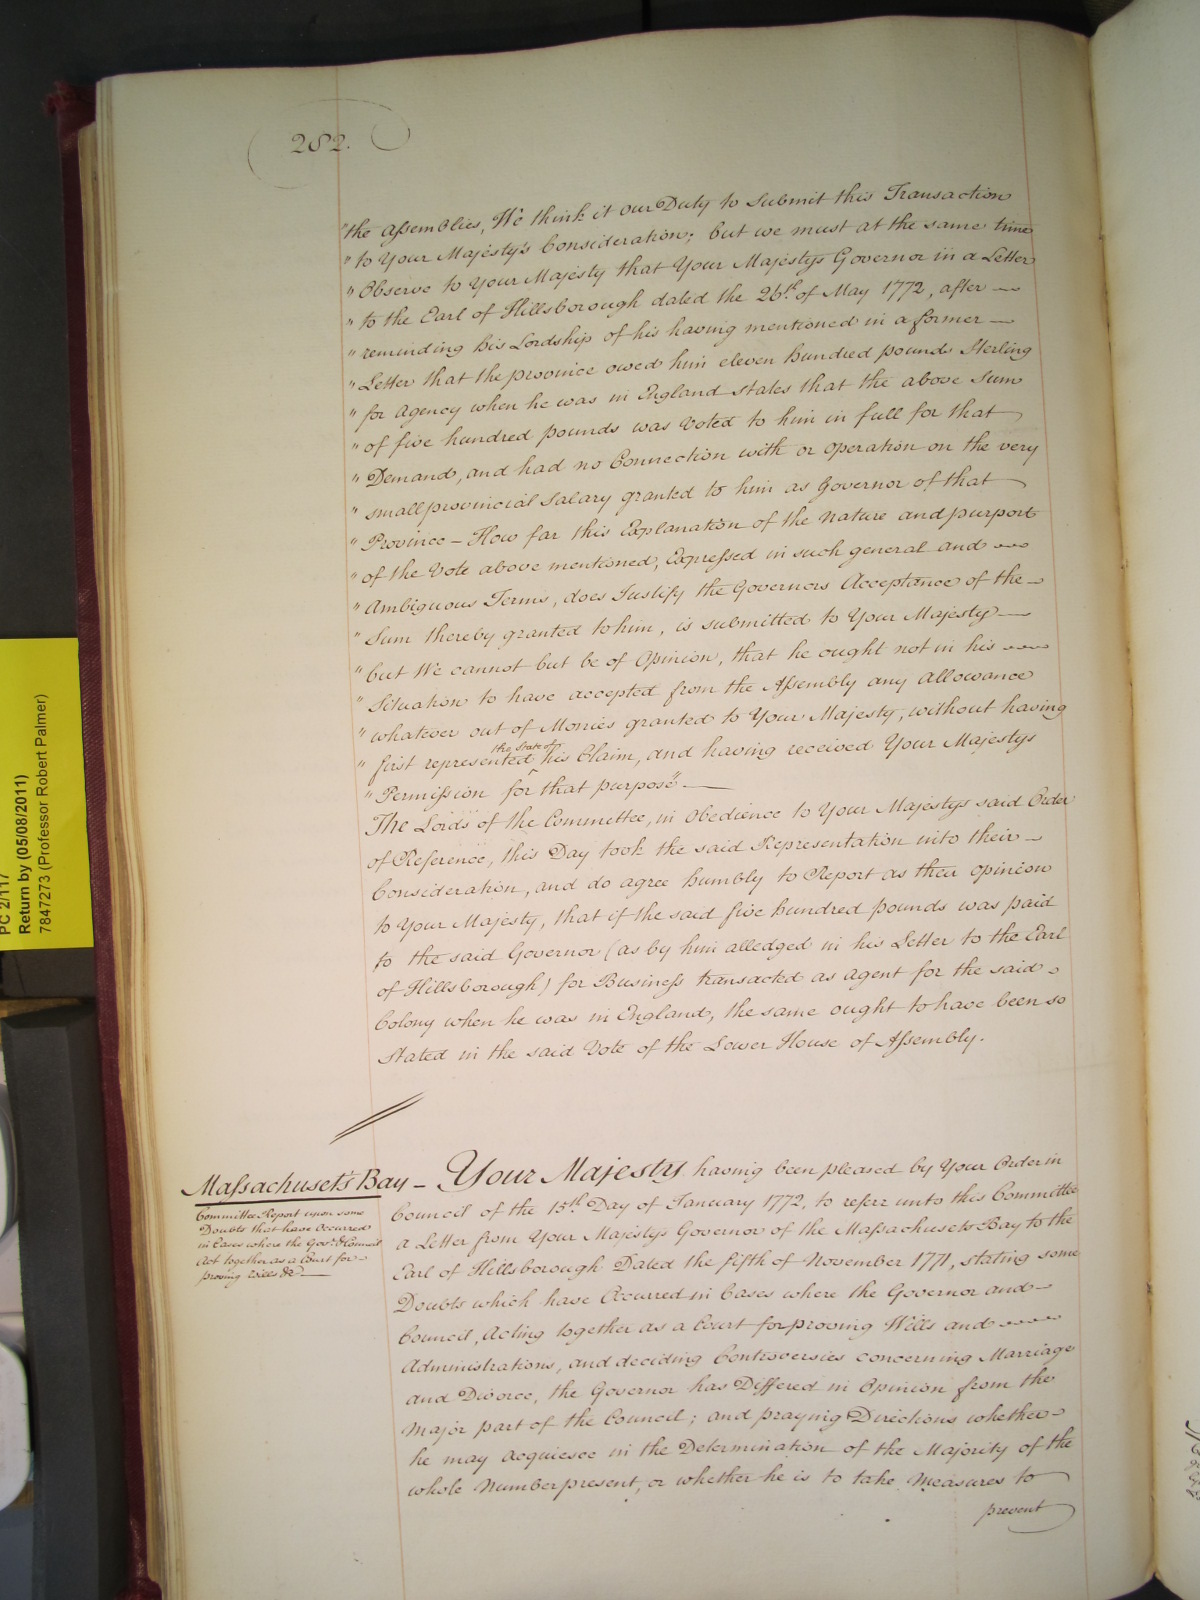 282.
"the Assemblies, We think it our Duty to Submit this Transaction
" to Your Majesty's Consideration; but we must at the same time
" Observe to Your Majesty that Your Majestys Governor in a Letter
" to the Earl of Hillsborough dated the 26th. of May 1772, after
" reminding his Lordship of his having mentioned in a former
" Letter that the province owed him eleven hundred pounds Sterling
" for Agency when he was in England states that the above Sum
" of five hundred pounds was Voted to him in full for that
" Demand, and had no Connection with or operation on the very
" small provincial Salary granted to him as Governor of that
" Province – How far this Explanation of the Nature and purport
" of the Vote above mentioned, Expressed in such general and
" Ambiguous Terms, does Justify the Governors Acceptance of the
" Sum thereby granted to him, is submitted to Your Majesty
" but We cannot but be of Opinion, that he ought not in his
" Situation to have accepted from the Assembly any allowance
" whatever out of Monies granted to Your Majesty, without having
the State of
" first represented ^ his Claim, and having received Your Majestys
" Permission for that purpose" —
The Lords of the Committee, in Obedience to Your Majestys said Order
of Reference, this Day took the said Representation into their
Consideration, and do agree humbly to Report as their opinion
to Your Majesty, that if the said five hundred pounds was paid
to the said Governor (as by him alledged in his Letter to the Earl
of Hillsborough) for Business transacted as Agent for the said
Colony when he was in England, the same ought to have been so
stated in the said Vote of the Lower House of Assembly.
Massachusets Bay –
Committee Report upon some
Doubts that have Occurred
in Cases where the Govr. & Council
Act together as a Court for
proving Wills &c
Your Majesty having been pleased by Your Order in
Council of the 15th Day of January 1772, to referr unto this Committee
a Letter from Your Majestys Governor of the Massachusets Bay to the
Earl of Hillsborough Dated the fifth of November 1771, stating some
Doubts which have Occurred in Cases where the Governor and
Council, Acting together as a Court for proving Wills and
Administrations, and deciding Controversies concerning Marriage
and Divorce, the Governor has Differed in Opinion from the
Major part of the Council; and praying Directions whether
he may acquiesce in the Determination of the Majority of the
whole Number present, or whether he is to take Measures to
prevent
PC 2/117
Return by (05/08/2011)
7847273 (Professor Robert Palmer)